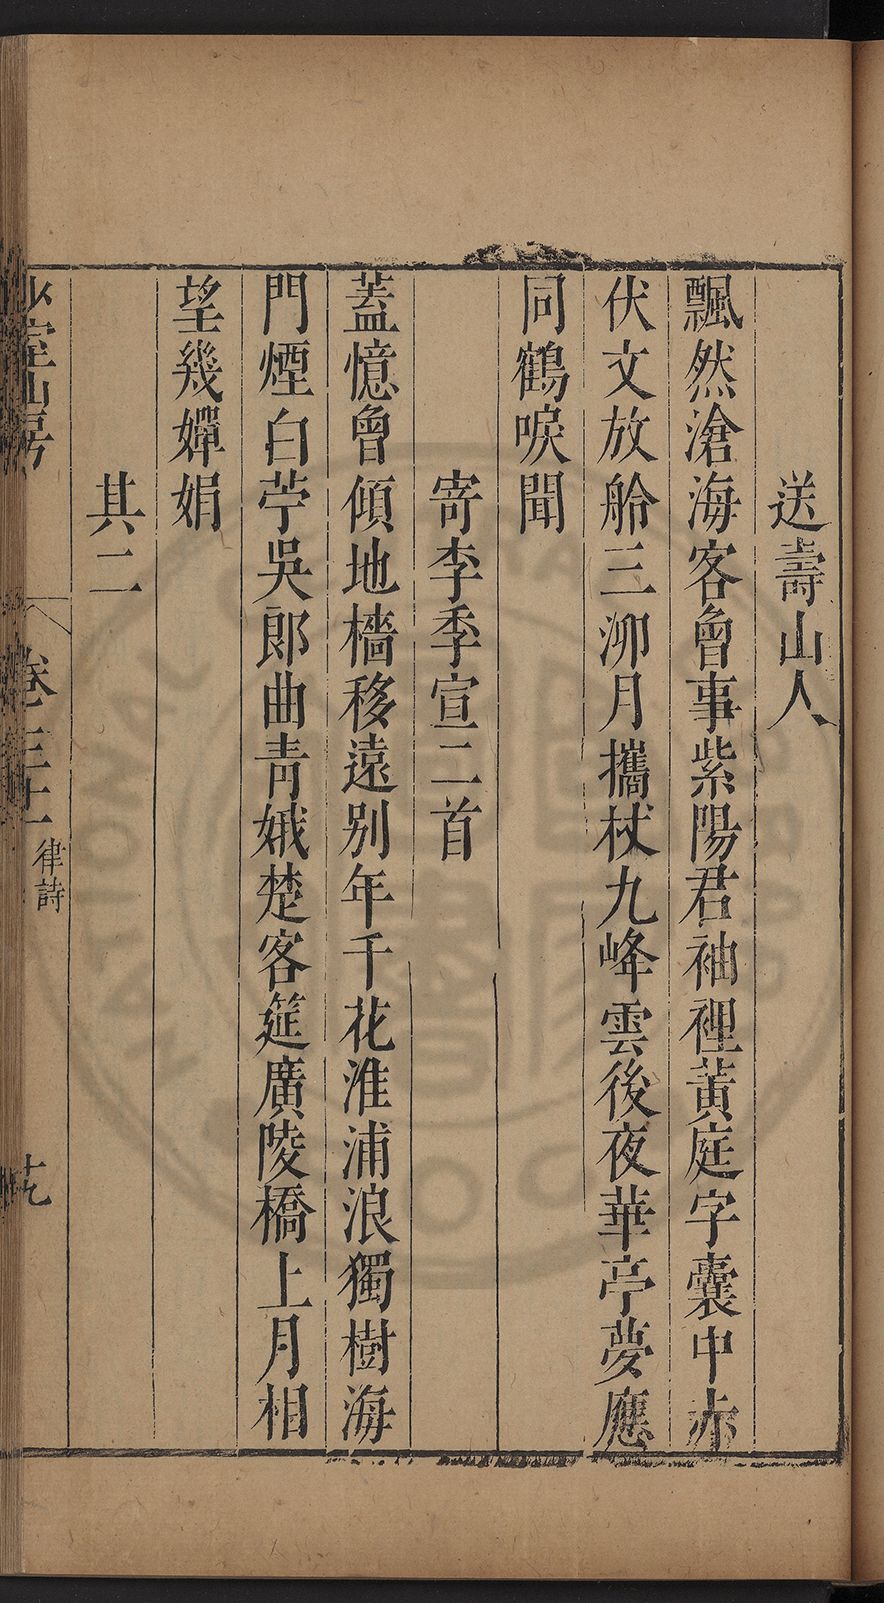 送壽山人
飄然滄海客曾事紫陽君袖裡黃庭字囊中赤
伏文放舲三泖月攜杖九峰雲後夜華亭夢應
同鶴唳聞
寄李季宣二首
蓋憶曾傾地檣移遠別年千花淮浦浪獨樹海
門煙白苧吳郎曲靑娥楚客筵廣陵橋上月相
望幾嬋娟
其二
少室山房
卷三十
律詩